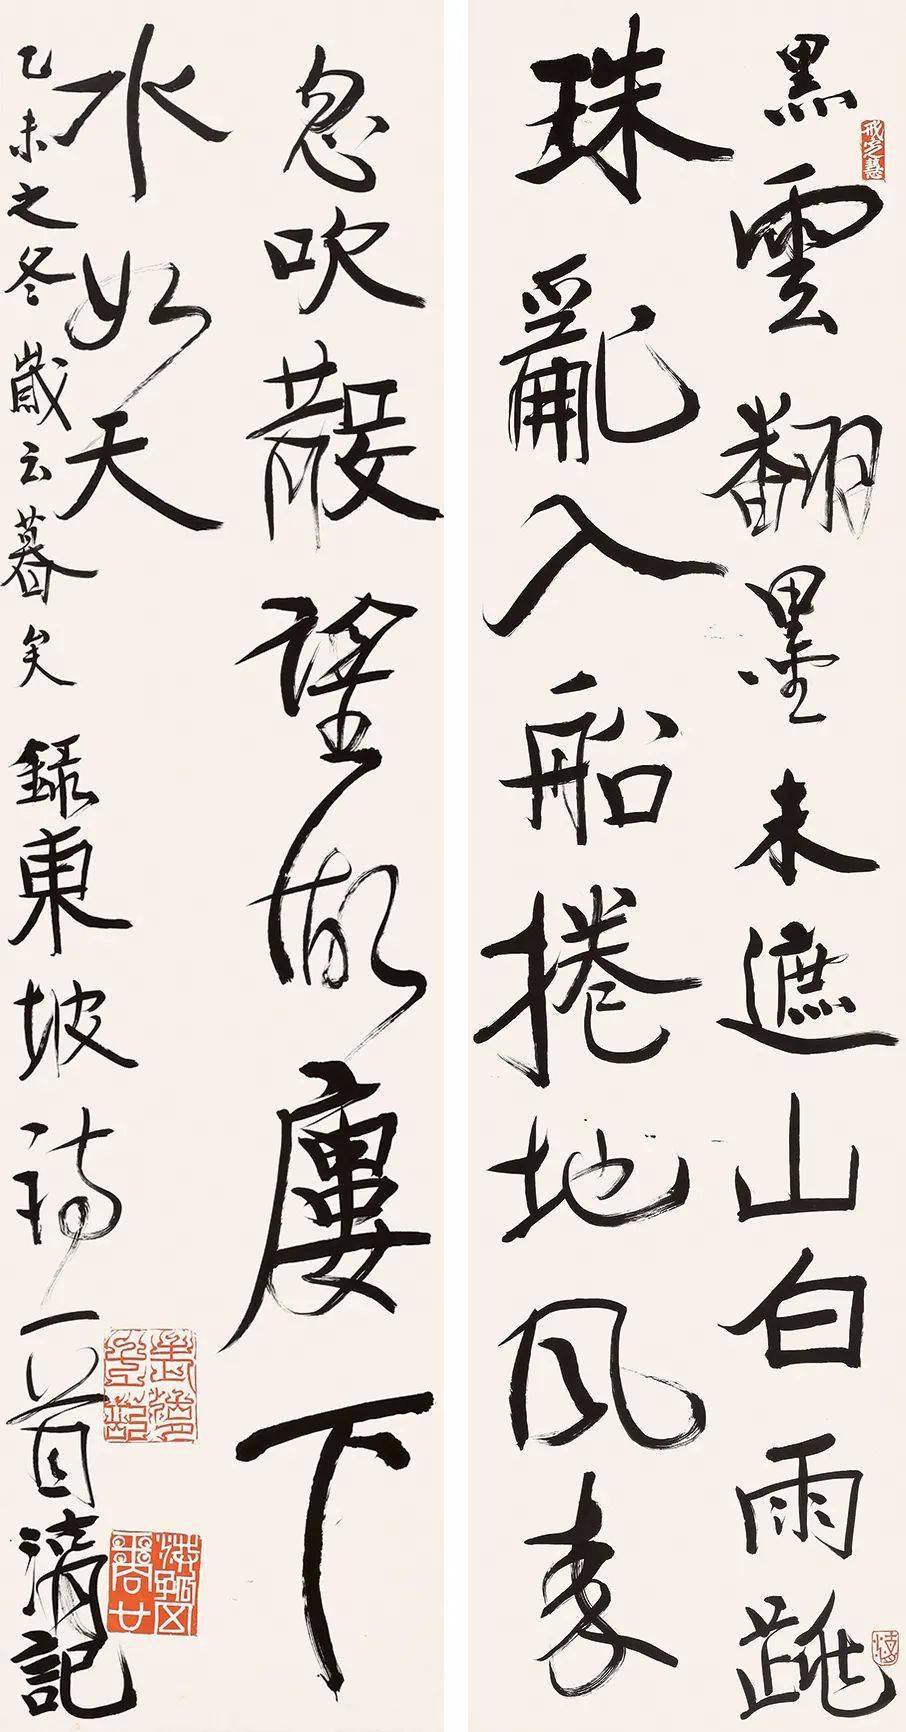 黑雲翻墨未遮山白雨跳
珠亂入船捲地风来
忽吹散望湖廔下
水如天
乙未之冬歲云暮矣錄東坡詩一首記